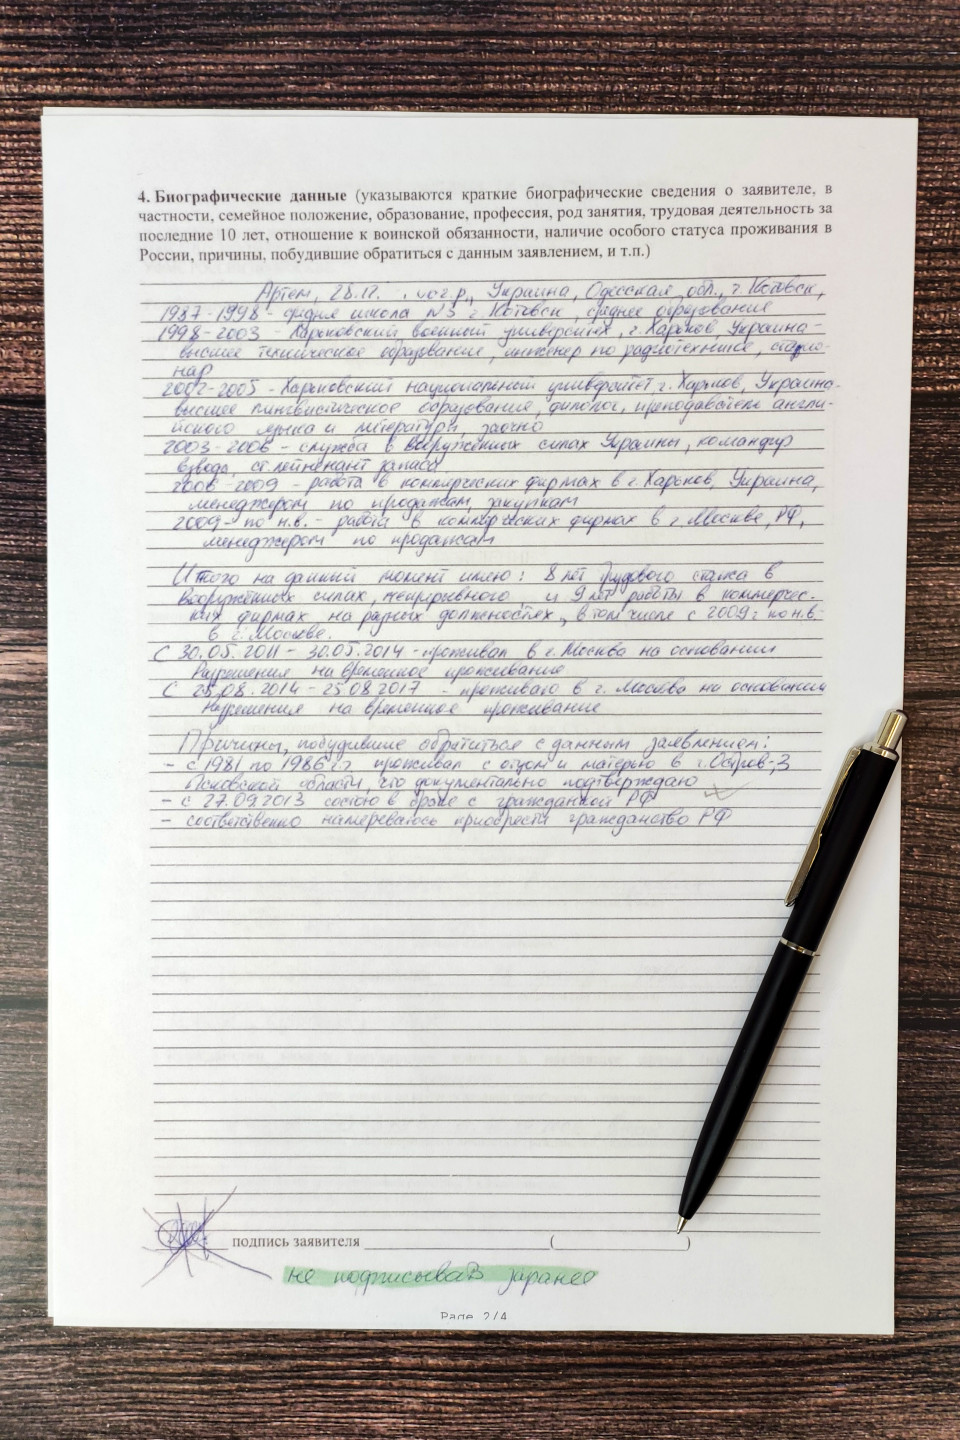 4. Биографические данные (указываются краткие биографические сведения о заявителе, в
частности, семейное положение, образование, профессия, род занятия, трудовая деятельность за
последние 10 лет, отношение к воинской обязанности, наличие особого статуса проживания в
России, причины, побудившие обратиться с данным заявлением, и т.п.)
Артем, 28.12. г.р., Украина, Одесская обл., г. Котовск,
1987-1998 - средняя школа №3 г. Котовск, среднее образование
1998-2003 - Харьковский военный университет, г. Харьков, Украина -
высшее техническое образование, инженер по радиотехнике, стацио-
нар
2002-2005 - Харьковский национальный университет г. Харьков, Украина-
высшее лингвистическое образование, филолог, преподаватель англи-
йского языка и литературы, заочно
2003-2006 - служба в Вооружённых силах Украины, командир
взвода, ст. лейтенант запаса
2006-2009 - работа в коммерческих фирмах в г. Харьков, Украина,
менеджером по продажам, закупкам
2009 - по н.в. - работа в коммерческих фирмах в г. Москве, РФ,
менеджером по продажам
Итого на данный момент имею: 8 лет трудового стажа в
Вооружённых силах, непрерывного и 9 лет работы в коммерчес-
ких фирмах на разных должностях, в том числе с 2009 г по н.в.
в г. Москве.
С 30.05.2011 - 30.05.2014 - проживал в г. Москва на основании
Разрешения на временное проживание
С 25.08.2014 - 25.08.2017 - проживаю в г. Москва на основании
Разрешения на временное проживание
Причины, побудившие обратиться с данным заявлением:
- с 1981 по 1986 г.г. проживал с отцом и матерью в г. Остров-3
Псковской области, что документально подтверждаю
- с 27.09.2013 состою в браке с гражданкой РФ
- соответственно намереваюсь приобрести гражданство РФ
подпись заявителя ( )
не подписывать заранее
Page 2/4